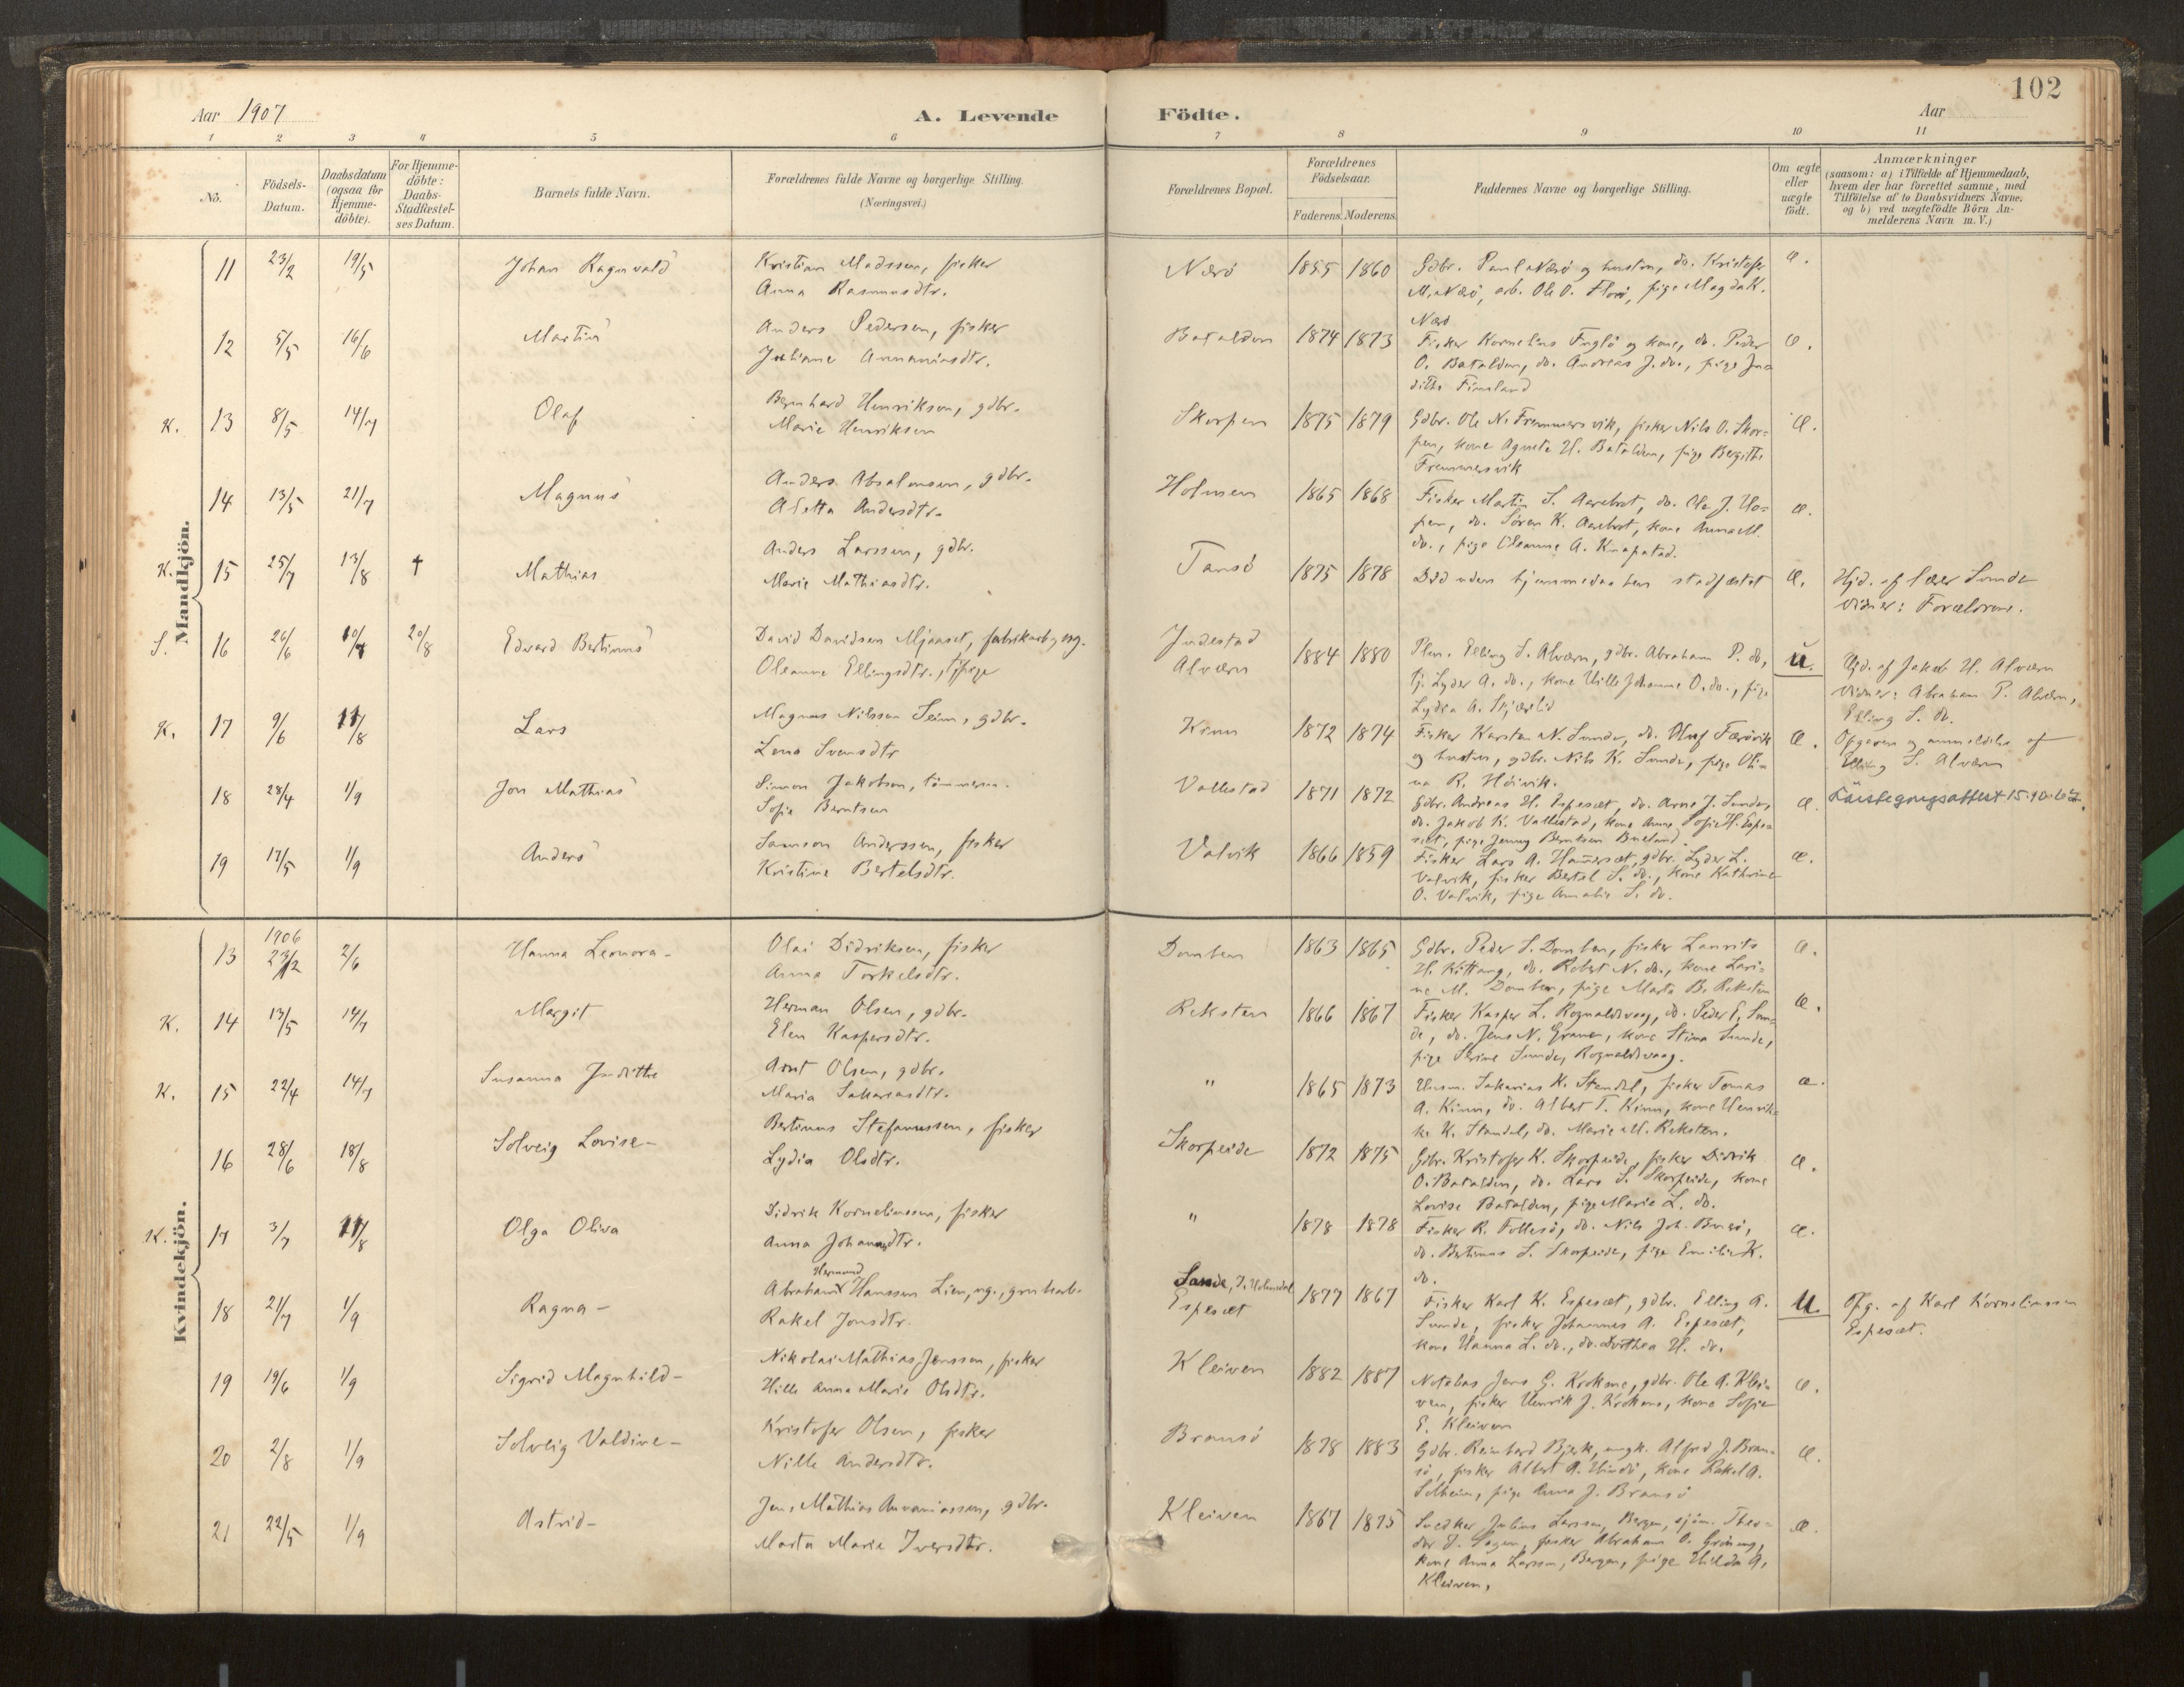 102
Aar 1907
A. Levende
Födte.
Aar
1 2 3 4 5 6 7 8 9 10 11
No.
Födsels-Datum.
Daabsdatum (ogsaa for Hjemme-döbte).
For Hjemme-döbte: Daabs-Stadfæstel-ses Datum.
Barnets fulde Navn.
Forældrenes fulde Navne og borgerlige Stilling.
(Næringsvei.)
Forældrenes Bopæl.
Forældrenes Födselsaar.
Faderens. Moderens.
Faddernes Navne og borgerlige Stilling.
Om ægte eller uægte födt.
Anmærkninger
(saasom: a) i Tilfælde af Hjemmedaab,
hvem der har forrettet samme, med
Tilföielse af to Daabsvidners Navne.
og b) ved uægtefödte Börn An-
melderens Navn m. V.)
Mandkjön.
11 23/2 19/5 Johan Ragnvald Kristian Madssen, fisker
Anna Rasmusdtr.
Nærö 1855 1860 Gdbr. Paul Nærö og hustru, do. Kristofer
M. Nærö, arb. Ole O. Florö, pige Magda K.
Nærö
æ.
12 5/5 16/6 Martin Anders Pedersen, fisker
Juliane Annaniasdtr.
Batalden 1874 1873 Fisker Kornelius Fuglö og kone, do. Peder
O. Batalden, do. Andreas J. do., pige Ju-
dithe Fimland
æ.
K. 13 8/5 14/7 Olaf Bernhard Henriksen, gdbr.
Marie Henriksen
Skorpen 1875 1879 Gdbr. Ole N. Fremmersvik, fisker Nils O. Skor-
pen, kone Agneta H. Batalden, pige Bergithe
Fremmersvik
æ.
14 13/5 21/7 Magnus Anders Absalonsen, gdbr.
Aletta Andersdtr.
Holmen 1865 1868 Fisker Martin S. Aarebrot, do. Ole J. Ho-
pen, do. Sören K. Aarebrot, kone Anna M.
do., pige Oleanne A. Knapstad.
æ.
K. 15 25/7 13/8 † Mathias Anders Larssen, gdbr.
Marie Mathiasdtr.
Tansö 1875 1878 Död uden hjemmedaaben stadfæstet
æ. Hjd. af lærer Sunde
Vidner: Forældrene.
S. 16 26/6 10/7 20/8 Edvard Bertinus David Davidsen Mjaaset, fabrikarb., ug.
Oleanne Ellingsdtr., pige
Indestad
Alværn
1884 1880 Elling S. Alværn, gdbr. Abraham P. do,
tj. Lyder A. do., kone Hille Johanne O. do., pige
Lydia A. Skjærlid
u. Hjd. af Jakob H. Alværn
Vidner: Abraham P. Alværn,
Elling S. do.
Opgaven og anmeldelse af
Elling S. Alværn
K. 17 9/6 11/8 Lars Magnus Nilssen Seim, gdbr.
Lena Svensdtr
Kinn 1872 1874 Fisker Karsten N. Sunde, do. Oluf Færövik
og hustru, gdbr. Nils K. Sunde, pige Oli-
na R. Höivik.
æ.
18 28/4 1/9 Jon Mathias Simon Jakobsen, tömmerm.
Sofie Berntsen
Vallestad 1871 1872 Gdbr. Andreas H. Espesæt, do. Arne J. Sunde,
do. Jakob K. Vallestad, kone Anne Sofie H. Espe-
sæt, pige Jenny Berntsen Bueland.
æ. 15.10.62
19 17/5 1/9 Anders Samson Anderssen, fisker
Kristine Bertelsdtr.
Valvik 1866 1859 Fisker Lars A. Hammersæt, gdbr. Lyder L.
Valvik, fisker Bertel S. do., kone Kathrine
O. Valvik, pige Amalie S. do.
æ.
Kvindekjön.
13 1906 23/12 2/6 Hanna Leonora Olai Didriksen, fisker
Anna Torkelsdtr.
Domben 1863 1865 Gdbr. Peder S. Domben, fisker Laurits
H. Kittang, do. Robert N. do., kone Lari-
ne M. Domben, pige Marta B. Reksten
æ.
K. 14 13/5 14/7 Margit Herman Olsen, gdbr.
Elen Kaspersdtr.
Reksten 1866 1867 Fisker Kasper L. Rognaldsvaag, do. Peder E. Sun-
de, do. Jens N. Granen, kone Stina Sunde,
pige Serine Sunde, Rognaldsvaag.
æ.
K. 15 22/4 14/7 Susanna Judithe Arnt Olsen, gdbr.
Maria Sakariasdtr.
" 1865 1873 Husm. Sakarias K. Standal, fisker Tomas
A. Kinn, do. Albert T. Kinn, kone Henrik-
ke K. Standal, do. Marie M. Reksten.
æ.
16 28/6 18/8 Solveig Lovise Bertinus Stefanussen, fisker
Lydia Olsdtr.
Skorpeide 1872 1875 Gdbr. Kristofer K. Skorpeide, fisker Didrik
O. Batalden, do. Lars S. Skorpeide, kone
Lovise Batalden, pige Marie L. do.
æ.
K. 17 3/7 11/8 Olga Oliva Didrik Korneliussen, fisker
Anna Johansdtr.
" 1878 1878 Fisker R. Tollesö, do. Nils Joh. Buesö,
do. Bertinus S. Skorpeide, pige Emilie K.
do.
æ.
18 21/7 1/9 Ragna Hermund
Abraham Hanssen Lien, ug., grubearb.
Rakel Jonsdtr.
Sande, I. Holmedal
Espesæt
1877 1867 Fisker Karl K. Espesæt, gdbr. Elling A.
Sunde, fisker Johannes A. Espesæt,
kone Hanna L. do., do. Dorthea H. do.
u. Opg. af Karl Korneliussen
Espesæt.
19 19/6 1/9 Sigrid Magnhild Nikolai Mathias Jenssen, fisker
Hille Anna Marie Olsdtr.
Kleiven 1882 1887 Notebas Jens G. Krokene, gdbr. Ole A. Klei-
ven, fisker Henrik J. Krokene, kone Sofie
E. Kleiven
æ.
20 2/8 1/9 Solveig Valdine Kristofer Olsen, fisker
Nille Andersdtr.
Bransö 1878 1883 Gdbr. Reinhard Bjerk, ungk. Alfred J. Bran-
sö, fisker Albert A. Hindö, kone Rakel A.
Solheim, pige Anna J. Bransö
æ.
21 22/5 1/9 Astrid Jens Mathias Ananiassen, gdbr.
Marta Marie Iversdtr.
Kleiven 1867 1875 Snedker Julius Larssen, Bergen, sjöm. Theo-
dor J. fisker Abraham O. Gröning,
kone Anna Larssen, Bergen, pige Hilda A.
Kleiven.
æ.